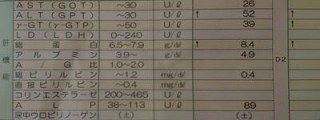 AST(GOT) ~30 U/ℓ 26
ALT(GPT) ~30 U/ℓ ↑ 52
γ-GT(γ-GTP) ~50 U/ℓ 39
LD(LDH) 0~240 U/ℓ
総蛋白 6.5~7.9 g/dℓ ↑ 8.4
アルブミン 3.9~ g/dℓ 4.9
A/G比 1.0~2.0
総ビリルビン ~1.2 mg/dℓ 0.4
直接ビリルビン ~0.4 mg/dℓ
コリンエステラーゼ 200~465 U/ℓ
ALP 38~113 U/ℓ 89
尿中ウロビリノーゲン (±) (±)
肝機能
D2